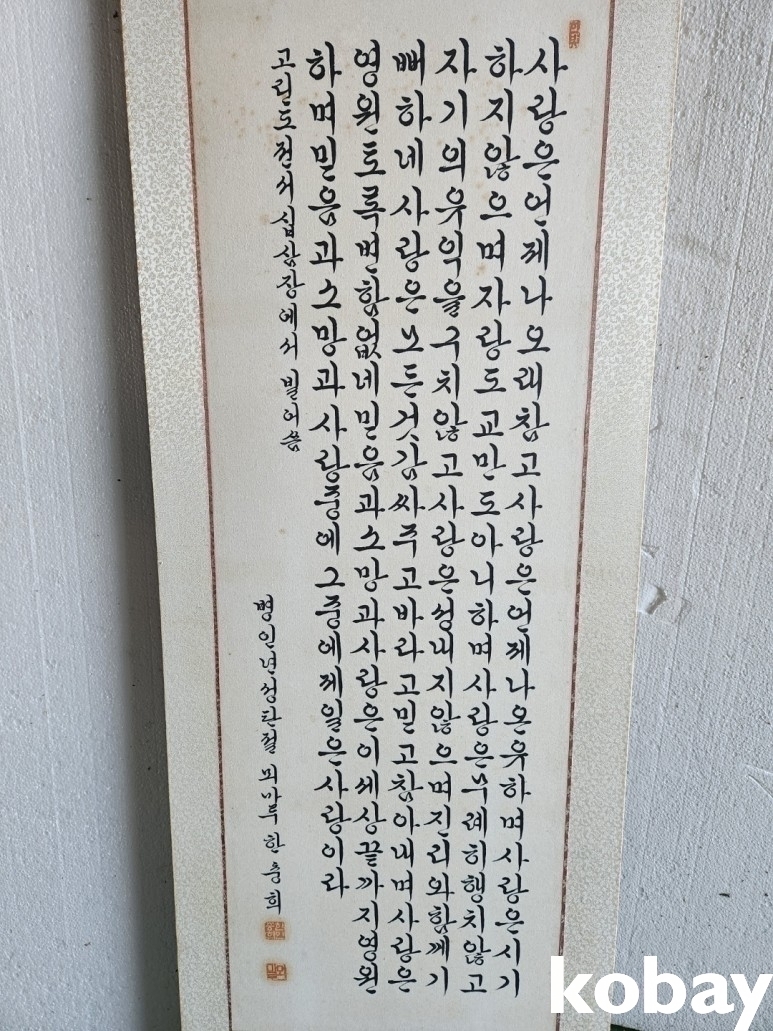 사랑은언제나오래참고사랑은언제나온유하며사랑은시기
하지않으며자랑도교만도아니하며사랑은무례히행치않고
자기의유익을구치않고사랑은성내지않으며진리와함께기
뻐하네사랑은모든것감싸주고바라고믿고참아내며사랑은
영원토록변함없네믿음과소망과사랑은이세상끝까지영원
하며믿음과소망과사랑중에그중에제일은사랑이라
고린도전서십삼장에서빌어씀
병인년성탄절 뫼마루 한충희
kobay